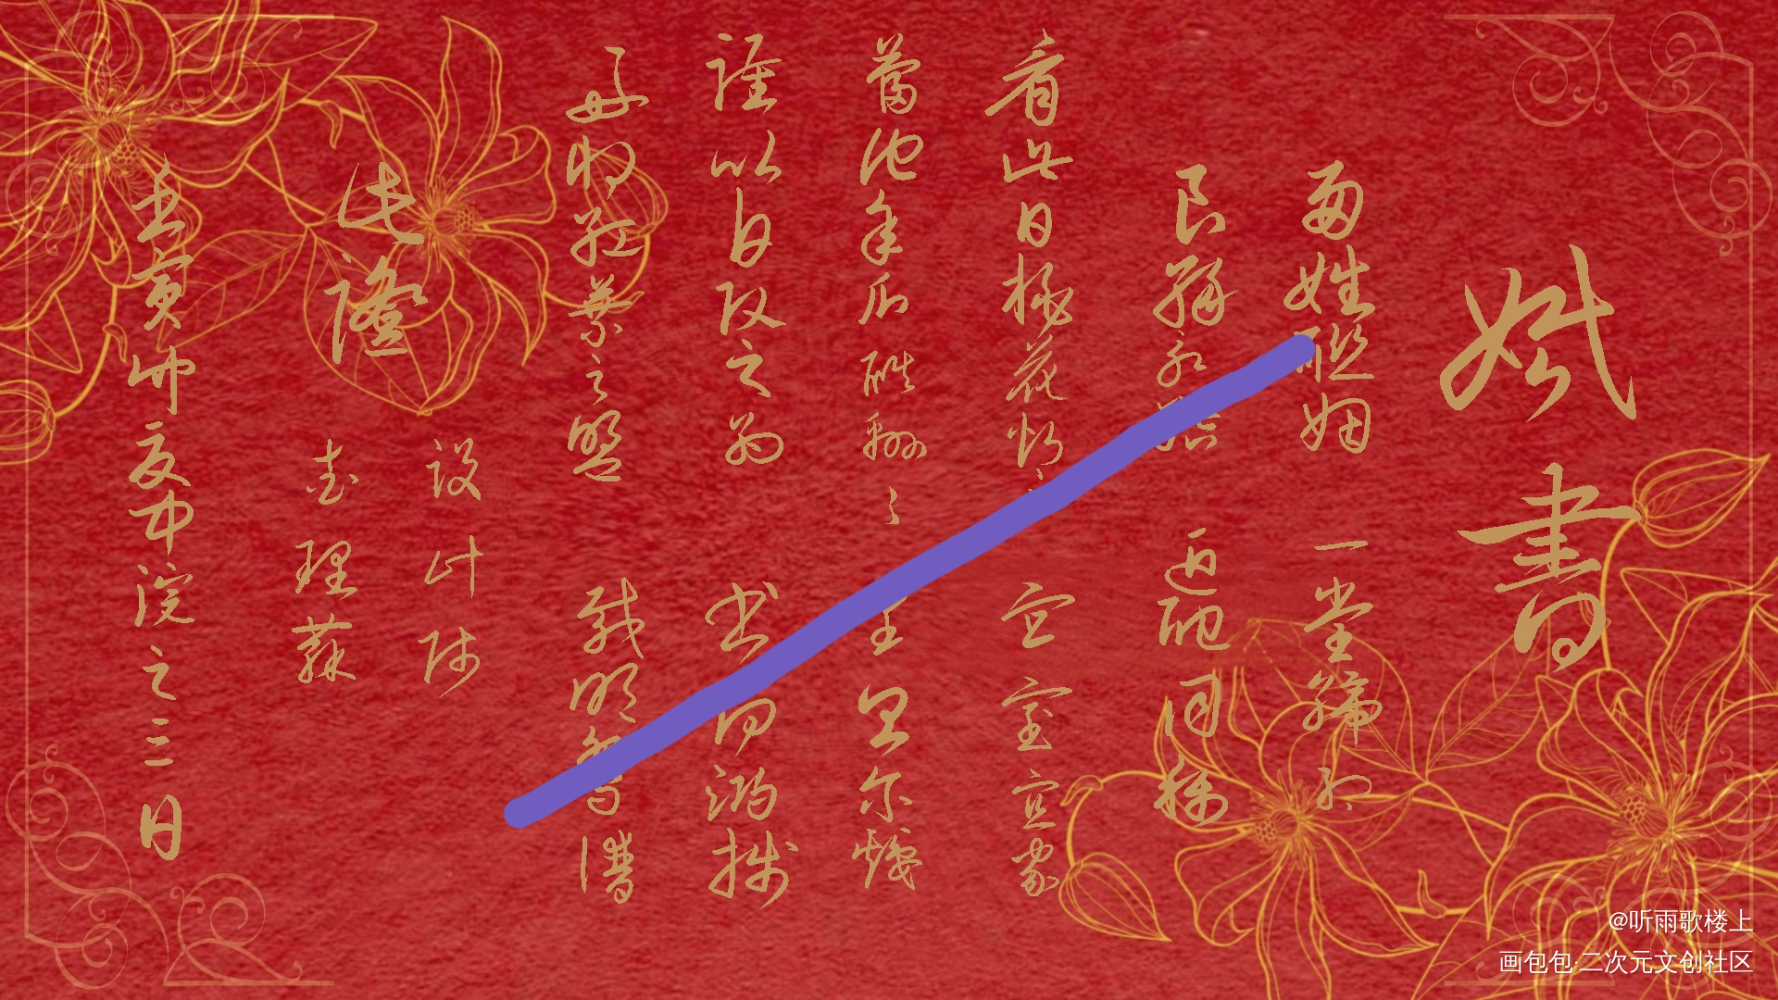 婚書
兩姓聯姻 一堂締約
良緣永結 匹配同稱
看此日桃花灼 宜室宜家
蔔他年瓜瓞綿々 昌爾熾
謹以白頭之約 書向鴻箋
好將紅葉之盟 載明鴛譜
此證
設計師
理蘇
壬寅年夏中浣之三日
@听雨歌楼上
画包包·二次元文创社区